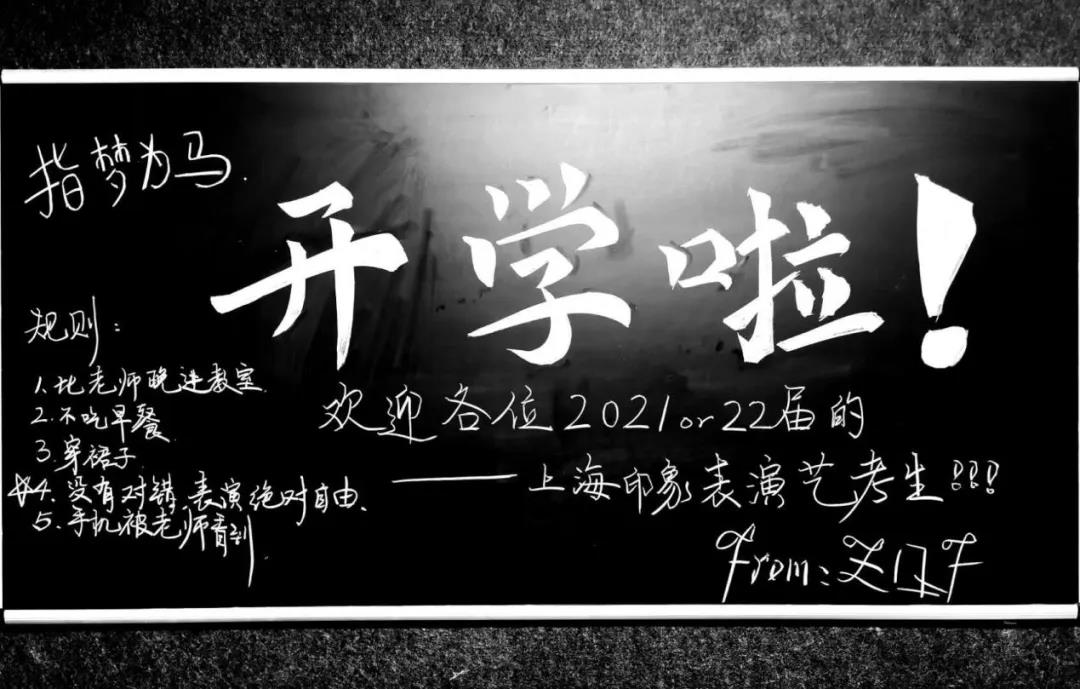 指梦为马.
开学啦!
规则:
1.比老师晚进教室.
2.不吃早餐
3.穿裙子.
☆4.没有对错,表演绝对自由.
5.手机被老师看到
欢迎各位2021or22届的
——上海印象表演艺考生!!!
From: